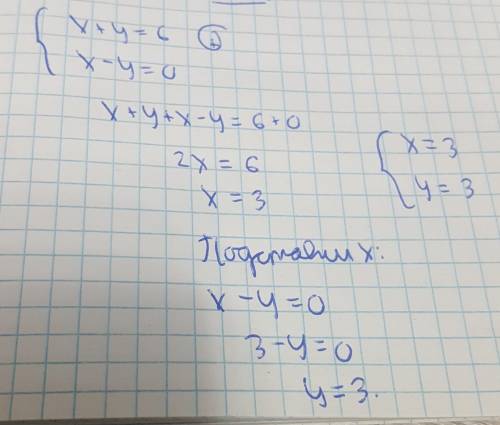 x+y=6 ⊕
x-y=0
x+y+x-y=6+0
2x=6
x=3
x=3
y=3
Подставим x:
x-y=0
3-y=0
y=3.